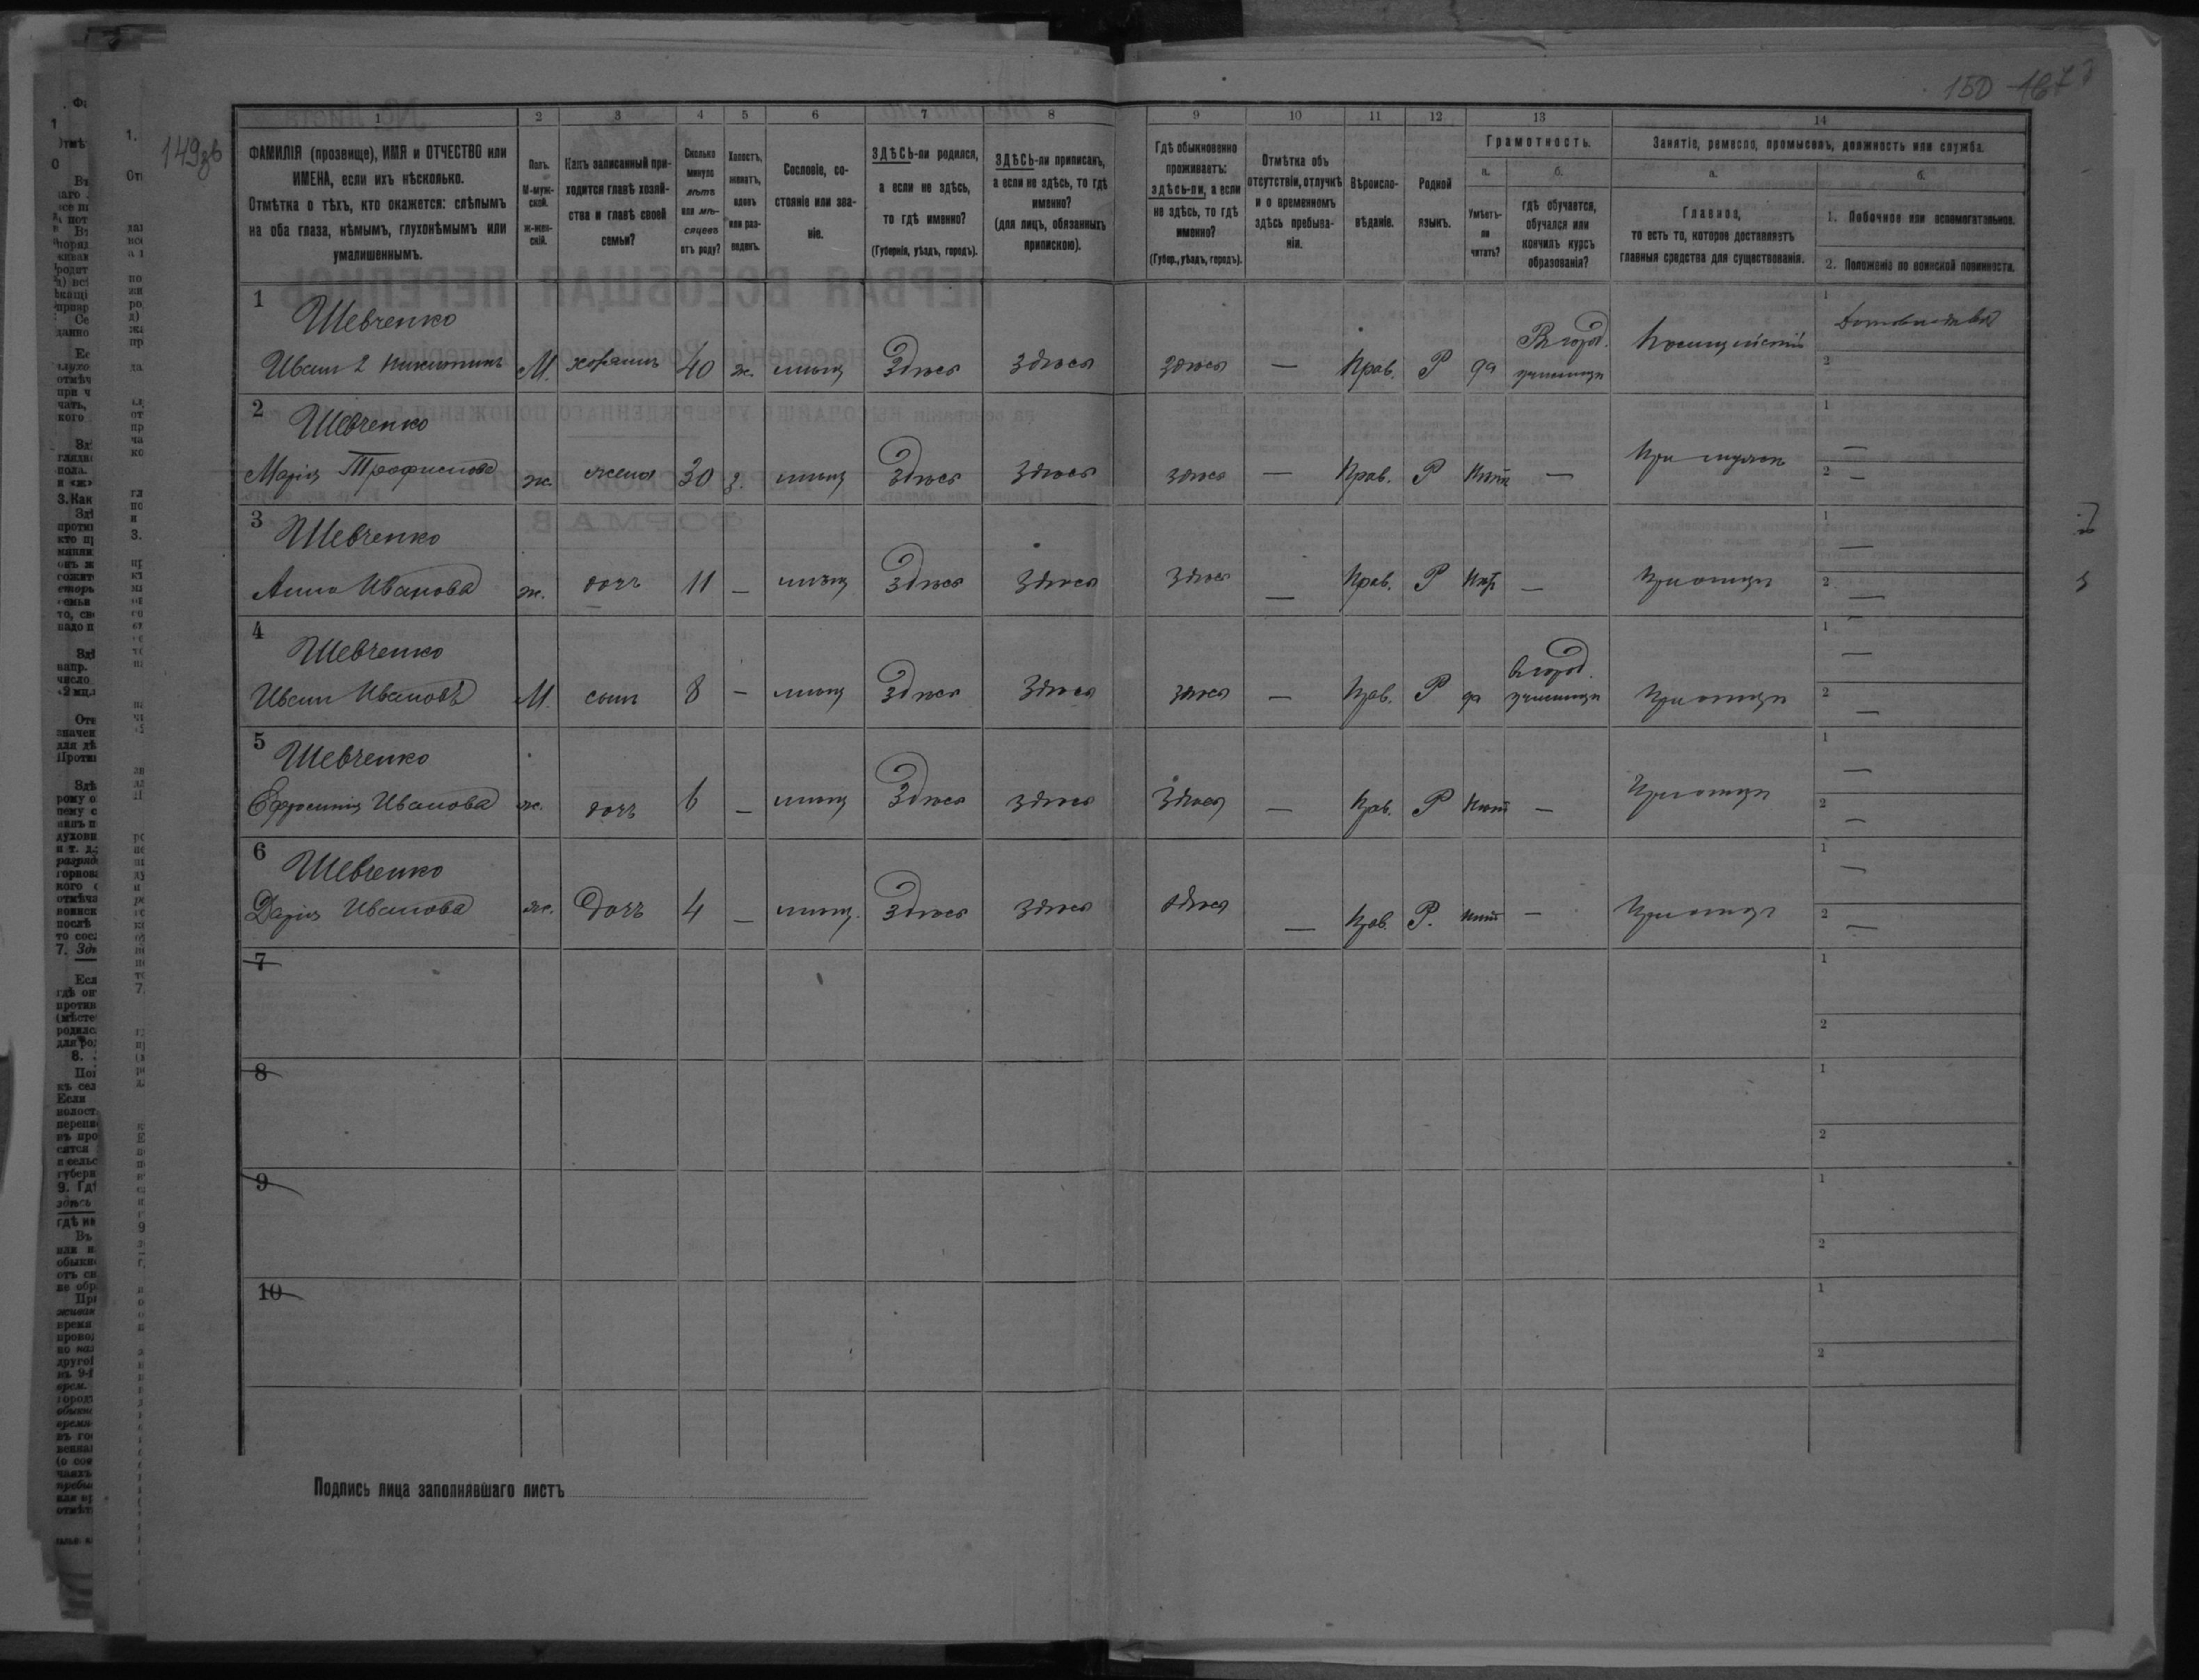 149зв
150 167
1 2 3 4 5 6 7 8 9 10 11 12 13 14
ФАМИЛІЯ (прозвище), ИМЯ и ОТЧЕСТВО или
ИМЕНА, если ихъ нѣсколько.
Отмѣтка о тѣхъ, кто окажется: слѣпымъ
на оба глаза, нѣмымъ, глухонѣмымъ или
умалишеннымъ.
Полъ.
М-муж-
ской.
ж-жен-
скій.
Какъ записанный при-
ходится главѣ хозяй-
ства и главѣ своей
семьи?
Сколько
минуло
лѣтъ
или мѣ-
сяцевъ
отъ роду?
Холостъ,
женатъ,
вдовъ
или раз-
веденъ.
Сословіе, со-
стояніе или зва-
ніе.
ЗДѢСЬ-ли родился,
а если не здѣсь,
то гдѣ именно?
(Губернія, уѣздъ, городъ).
ЗДѢСЬ-ли приписанъ,
а если не здѣсь, то гдѣ
именно?
(для лицъ, обязанныхъ
припискою).
Гдѣ обыкновенно
проживаетъ:
здѣсь-ли, а если
не здѣсь, то гдѣ
именно?
(Губер., уѣздъ, городъ).
Отмѣтка объ
отсутствіи, отлучкѣ
и о временномъ
здѣсь пребыва-
ніи.
Вѣроиспо-
вѣданіе.
Родной
языкъ.
Грамотность.
а.
Умѣетъ-
ли
читать?
б.
гдѣ обучается,
обучался или
кончилъ курсъ
образованія?
Занятіе, ремесло, промыселъ, должность или служба.
а.
Главное,
то есть то, которое доставляетъ
главныя средства для существованія.
б.
1. Побочное или вспомогательное.
2. Положеніе по воинской повинности.
1 Шевченко
Иванъ Никитинъ М. хозяинъ 40 ж. мѣщ здѣсь здѣсь здѣсь — Прав. Р да Въ город. училищѣ
1
2
2 Шевченко
Марія Трофимова ж. жена 30 з. мѣщ здѣсь здѣсь здѣсь — Прав. Р нѣтъ — При мужѣ
1 —
2 —
3 Шевченко
Анна Иванова ж. дочь 11 — мѣщ здѣсь здѣсь здѣсь — Прав. Р нѣтъ — При отцѣ
1 —
2 —
4 Шевченко
Иванъ Ивановъ М. сынъ 8 — мѣщ здѣсь здѣсь здѣсь — Прав. Р да В город. училищѣ При отцѣ
1 —
2 —
5 Шевченко
Ефросинія Иванова ж. дочь 6 — мѣщ здѣсь здѣсь здѣсь — Прав. Р нѣтъ — При отцѣ
1 —
2 —
6 Шевченко
Дарія Иванова ж. Дочь 4 — мѣщ. здѣсь здѣсь здѣсь — Прав. Р. нѣтъ — При отцѣ
1 —
2 —
7
1
2
8
1
2
9
1
2
10
1
2
Подпись лица заполнявшаго листъ